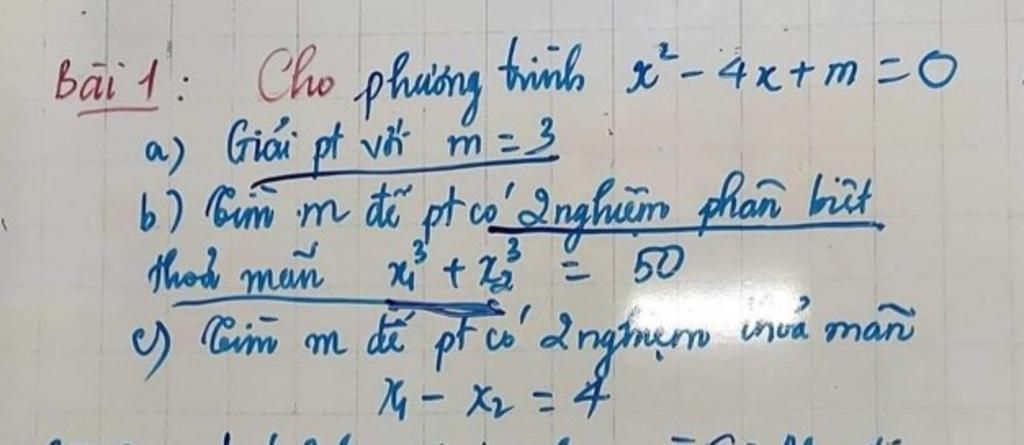 Bài 1: Cho phương trình x² - 4x + m = 0
a) Giải pt với m = 3
b) Tìm m để pt có 2 nghiệm phân biệt
thoả mãn x₁³ + x₂³ = 50
c) Tìm m để pt có 2 nghiệm thoả mãn
x₁ - x₂ = 4